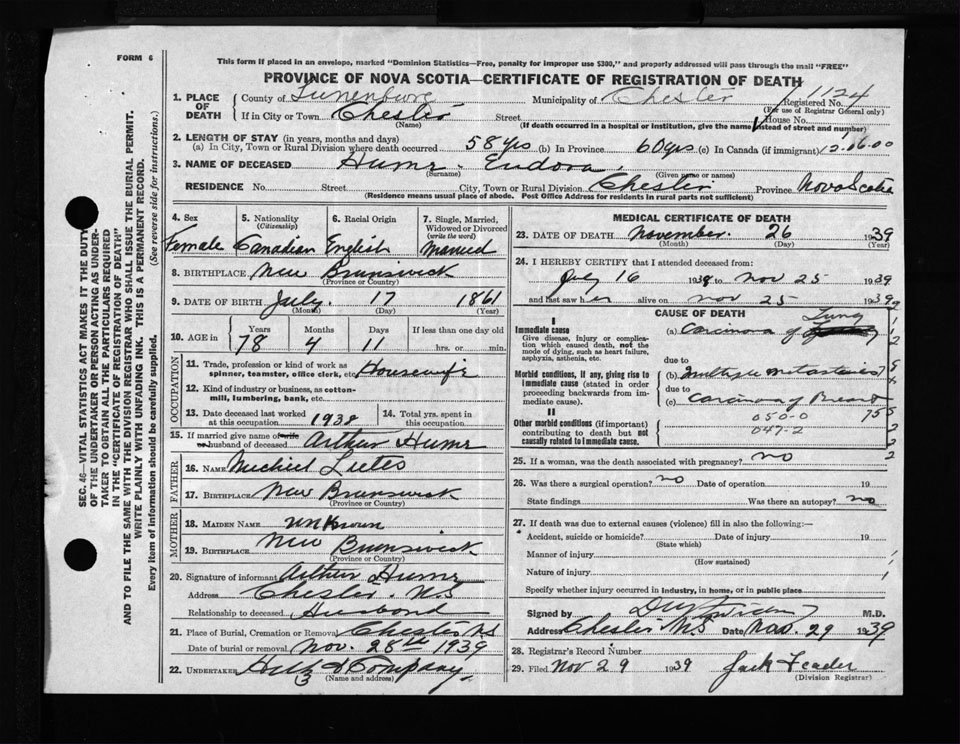 FORM 6
This form if placed in an envelope, marked "Dominion Statistics—Free, penalty for improper use $300," and properly addressed will pass through the mail "FREE"
PROVINCE OF NOVA SCOTIA—CERTIFICATE OF REGISTRATION OF DEATH
1. PLACE OF DEATH County of Lunenburg Municipality of Chester Registered No. 1124
(For use of Registrar General only)
If in City or Town Chester Street House No.
(Name) (If death occurred in a hospital or institution, give the name instead of street and number)
2. LENGTH OF STAY (in years, months and days)
(a) In City, Town or Rural Division where death occurred 58 yrs (b) In Province 60 yrs (c) In Canada (if immigrant) 12.06.00
3. NAME OF DECEASED Hume Eudora
(Surname) (Given name or names)
RESIDENCE No. Street City, Town or Rural Division Chester Province Nova Scotia
(Residence means usual place of abode. Post Office Address for residents in rural parts not sufficient)
4. Sex Female
5. Nationality (Citizenship) Canadian
6. Racial Origin English
7. Single, Married, Widowed or Divorced (write the word) Married
8. BIRTHPLACE New Brunswick
(Province or Country)
9. DATE OF BIRTH July 17 1861
(Month) (Day) (Year)
10. AGE in Years 78 Months 4 Days 11 If less than one day old hrs. or min.
OCCUPATION
11. Trade, profession or kind of work as spinner, teamster, office clerk, etc. Housewife
12. Kind of industry or business, as cotton-mill, lumbering, bank, etc.
13. Date deceased last worked at this occupation 1938
14. Total yrs. spent in this occupation
15. If married give name of wife or husband of deceased Arthur Hume
FATHER
16. NAME
17. BIRTHPLACE New Brunswick
MOTHER
18. MAIDEN NAME unknown
19. BIRTHPLACE New Brunswick
(Province or Country)
20. Signature of informant Arthur Hume
Address Chester N.S
Relationship to deceased Husband
21. Place of Burial, Cremation or Removal Chester NS
Date of burial or removal Nov. 28th 1939
22. UNDERTAKER & Company
(Name and address)
MEDICAL CERTIFICATE OF DEATH
23. DATE OF DEATH November 26 1939
(Month) (Day) (Year)
24. I HEREBY CERTIFY that I attended deceased from:
July 16 1938 to Nov 25 1939
and last saw her alive on Nov 25 1939
CAUSE OF DEATH
I
Immediate cause
Give disease, injury or complication which caused death, not the mode of dying, such as heart failure, asphyxia, asthenia, etc.
(a) Carcinoma of Lung
due to
Morbid conditions, if any, giving rise to immediate cause (stated in order proceeding backwards from immediate cause).
(b) Multiple metastasies
due to
(c) Carcinoma of Breast
II
Other morbid conditions (if important) contributing to death but not causally related to immediate cause.
050-0
047-2
25. If a woman, was the death associated with pregnancy? no
26. Was there a surgical operation? no Date of operation 19
State findings Was there an autopsy? no
27. If death was due to external causes (violence) fill in also the following:—
Accident, suicide or homicide? Date of injury 19
(State which)
Manner of injury
(How sustained)
Nature of injury
Specify whether injury occurred in Industry, in home, or in public place
Signed by M.D.
Address Chester N.S Date Nov. 29 1939
28. Registrar's Record Number
29. Filed Nov 29 1939 Jack
(Division Registrar)
SEC. 46—VITAL STATISTICS ACT MAKES IT THE DUTY
OF THE UNDERTAKER OR PERSON ACTING AS UNDER-
TAKER TO OBTAIN ALL THE PARTICULARS REQUIRED
IN THE "CERTIFICATE OF REGISTRATION OF DEATH"
AND TO FILE THE SAME WITH THE DIVISION REGISTRAR WHO SHALL ISSUE THE BURIAL PERMIT.
WRITE PLAINLY WITH UNFADING INK. THIS IS A PERMANENT RECORD.
Every item of information should be carefully supplied. (See reverse side for instructions.)